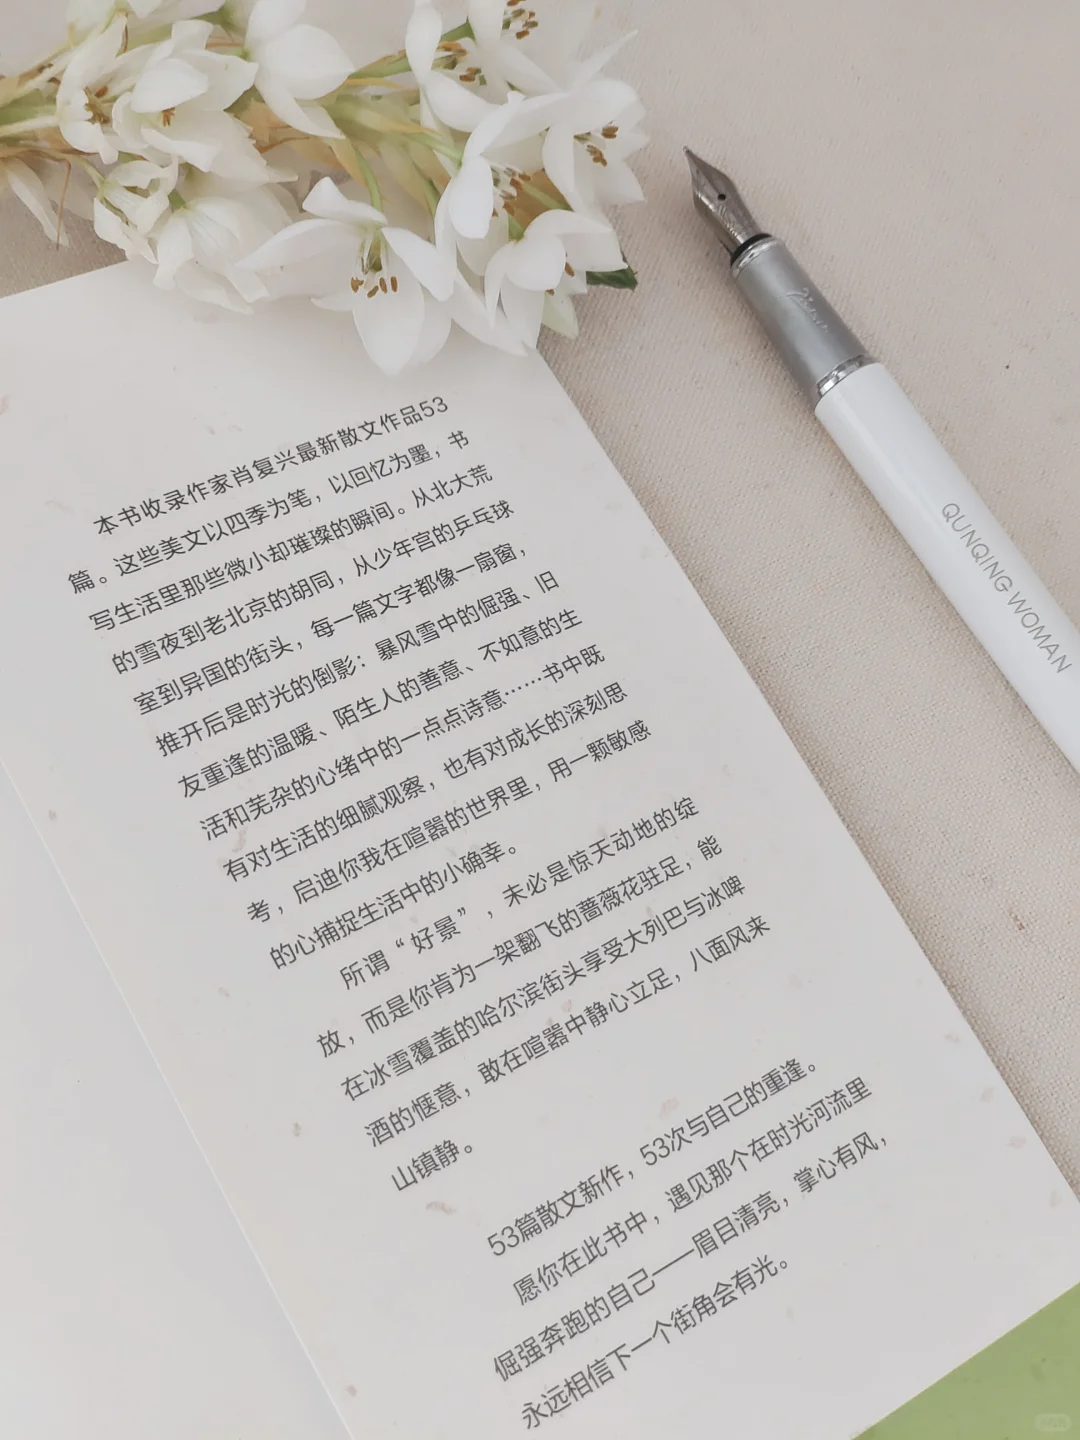 本书收录作家肖复兴最新散文作品53
篇。这些美文以四季为笔，以回忆为墨，书
写生活里那些微小却璀璨的瞬间。从北大荒
的雪夜到老北京的胡同，从少年宫的乒乓球
室到异国的街头，每一篇文字都像一扇窗，
推开后是时光的倒影：暴风雪中的倔强、旧
友重逢的温暖、陌生人的善意、不如意的生
活和芜杂的心绪中的一点点诗意……书中既
有对生活的细腻观察，也有对成长的深刻思
考，启迪你我在喧嚣的世界里，用一颗敏感
的心捕捉生活中的小确幸。
所谓“好景”，未必是惊天动地的绽
放，而是你肯为一架翻飞的蔷薇花驻足，能
在冰雪覆盖的哈尔滨街头享受大列巴与冰啤
酒的惬意，敢在喧嚣中静心立足，八面风来
山镇静。
53篇散文新作，53次与自己的重逢。
愿你在此书中，遇见那个在时光河流里
倔强奔跑的自己——眉目清亮，掌心有风，
永远相信下一个街角会有光。
QUNQING WOMAN